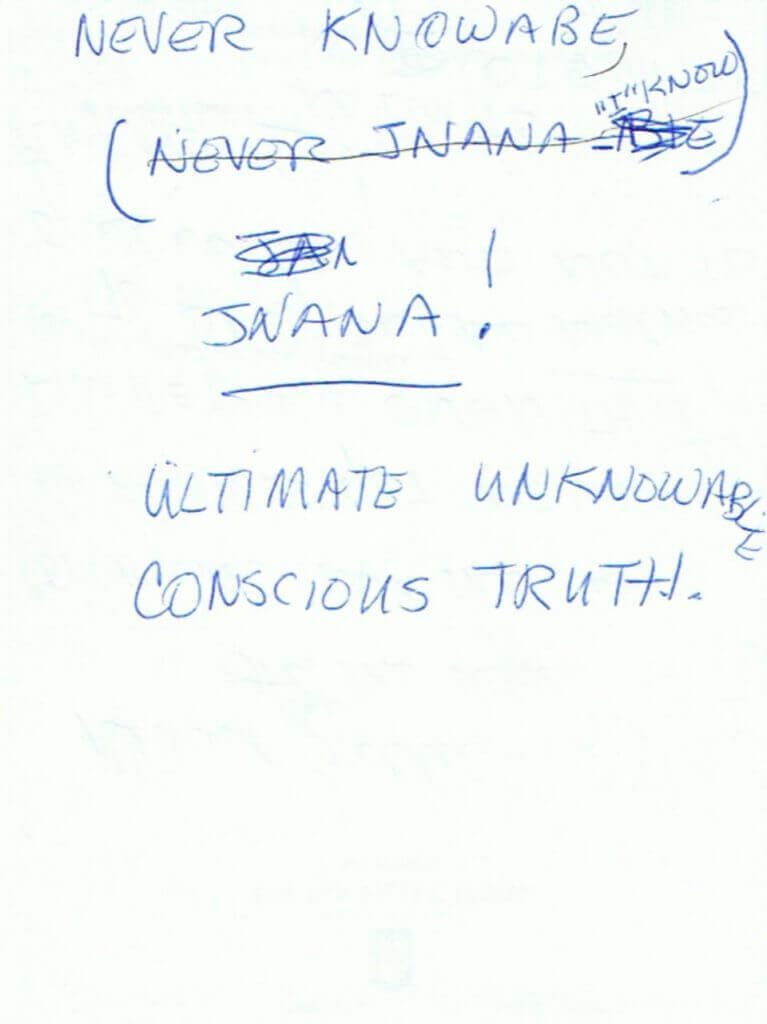 NEVER KNOWABE,
"I" KNOW
(NEVER JNANA-ABLE)
JAN
JNANA!
ULTIMATE UNKNOWABLE
CONSCIOUS TRUTH.